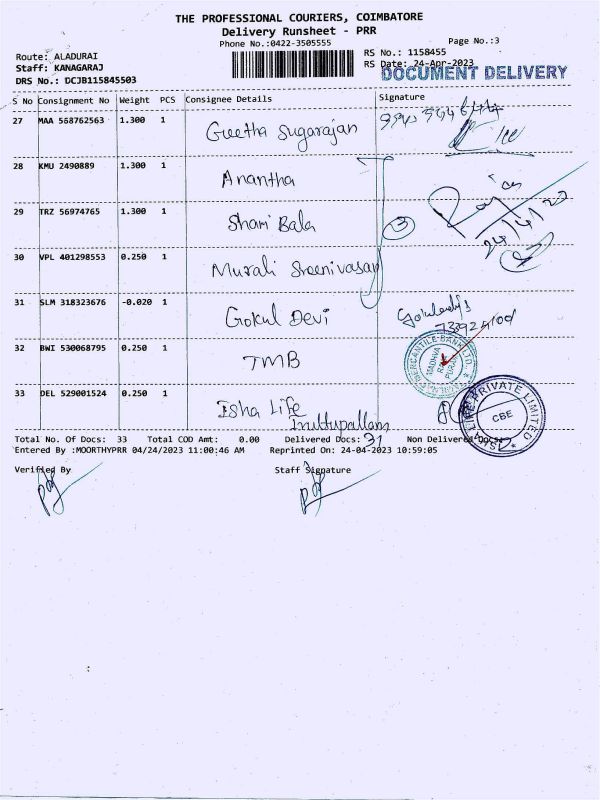 THE PROFESSIONAL COURIERS, COIMBATORE
Delivery Runsheet - PRR
Phone No.:0422-3505555
Page No.:3
Route: ALADURAI
RS No.: 1158455
Staff: KANAGARAJ
RS Date: 24-Apr-2023
DRS No.: DCJB115845503
DOCUMENT DELIVERY
S No Consignment No Weight PCS Consignee Details Signature
27 MAA 568762563 1.300 1 Geetha Sugarajan
28 KMU 2490889 1.300 1 Anantha
29 TRZ 56974765 1.300 1 Shami Bala
3
24/4/23
30 VPL 401298553 0.250 1 Murali Sreenivasan
31 SLM 318323676 -0.020 1 Gokul Devi
32 BWI 530068795 0.250 1 TMB
MERCANTILE BANK LTD.
33 DEL 529001524 0.250 1 Isha Life
Iruttupallam
ISHA LIFE PRIVATE LIMITED
CBE
Total No. Of Docs: 33 Total COD Amt: 0.00 Delivered Docs: 31 Non Delivered Docs: 2
Entered By :MOORTHYPRR 04/24/2023 11:00:46 AM Reprinted On: 24-04-2023 10:59:05
Verified By Staff Signature